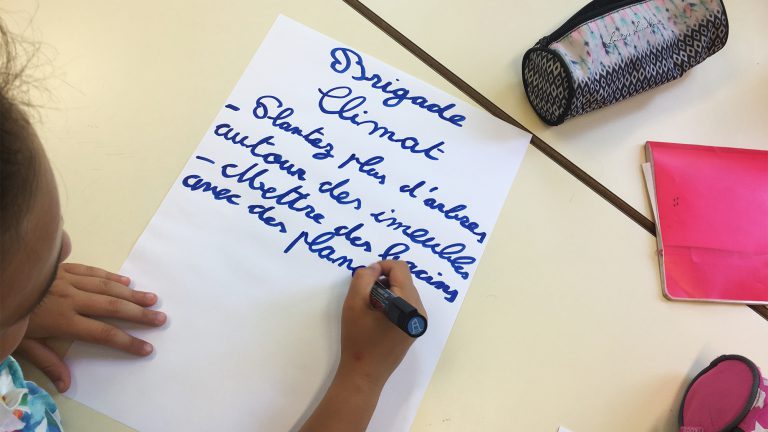 Brigade
Climat
- Plantez plus d'arbres
autour des imeubles
- Mettre des bacins
avec des plan